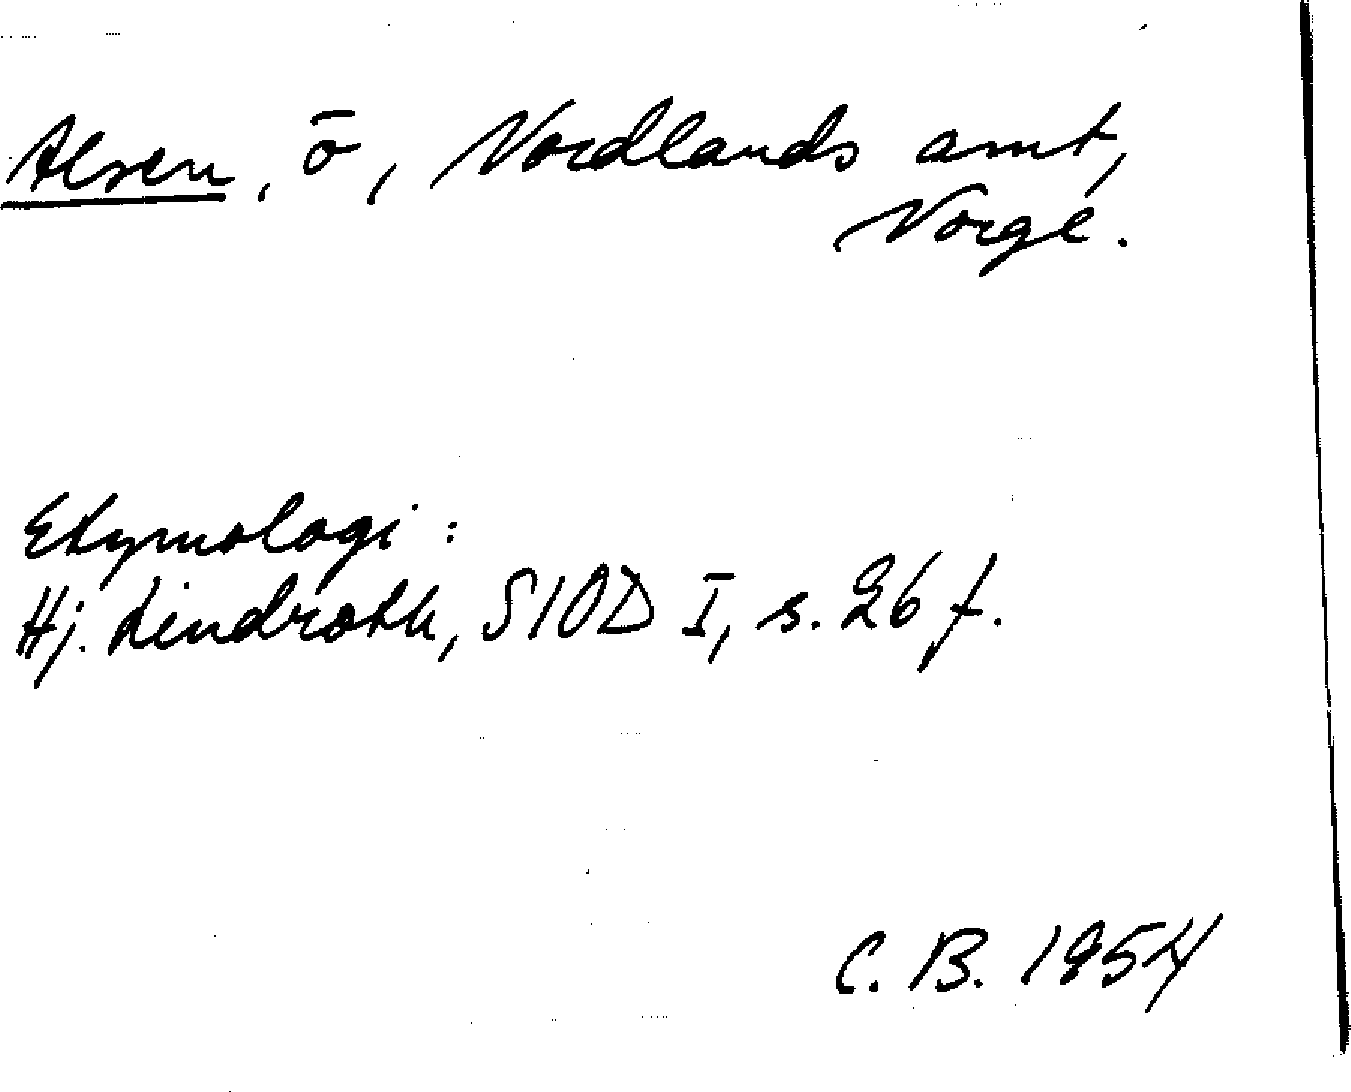 Alsen, ö, Nordlands amt,
Norge.
Etymologi:
Hj. Lindroth, SIOD I, s. 26 f.
C. B. 1954